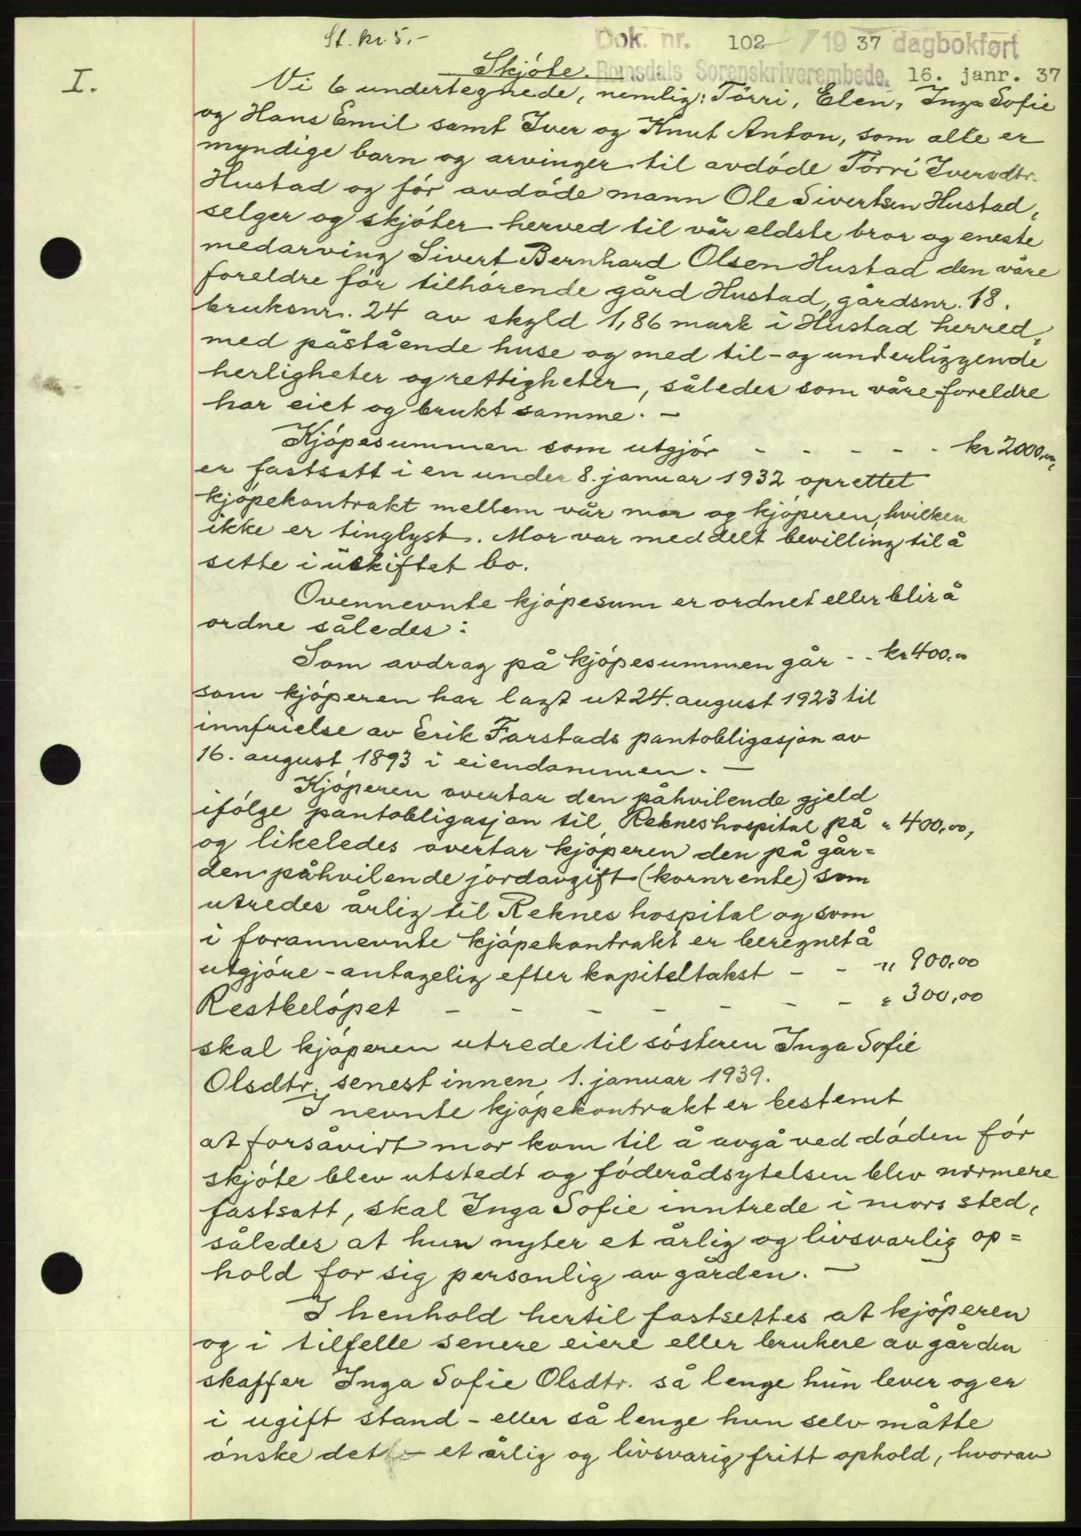 St. kr. 5.-
Dok. nr. 102 / 1937 dagbokført
Romsdals Sorenskriverembede, 16. janr. 37
I.
Skjøte.
Vi 6 undertegnede, nemlig: Tórri, Elen, Inga Sofie
og Hans Emil samt Iver og Knut Anton, som alle er
myndige barn og arvinger til avdøde Tórri Iversdtr.
Hustad og før avdøde mann Ole Sivertsen Hustad,
selger og skjøter herved til vår eldste bror og eneste
medarving Sivert Bernhard Olsen Hustad den våre
foreldre før tilhørende gård Hustad, gårdsnr. 18.
bruksnr. 24 av skyld 1,86 mark i Hustad herred,
med påstående huse og med til- og underliggende
herligheter og rettigheter, således som våre foreldre
har eiet og brukt samme. -
Kjøpesummen som utgjør - - - - - kr 2000,00,
er fastsatt i en under 8. januar 1932 oprettet
kjøpekontrakt mellem vår mor og kjøperen, hvilken
ikke er tinglyst. Mor var meddelt bevilling til å
sitte i uskiftet bo.
Ovennevnte kjøpesum er ordnet eller blir å
ordne således:
Som avdrag på kjøpesummen går - - kr 400,00
som kjøperen har lagt ut 24. august 1923 til
innfrielse av Erik Farstads pantobligasjon av
16. august 1893 i eiendommen. -
Kjøperen overtar den påhvilende gjeld
ifølge pantobligasjon til Reknes hospital på " 400,00,
og likeledes overtar kjøperen den på går=
den påhvilende jordavgift (kornrente) som
utredes årlig til Reknes hospital og som
i forannevnte kjøpekontrakt er beregnet å
utgjøre - antagelig efter kapiteltakst - - " 900,00
Restbeløpet - - - - - - - " 300,00
skal kjøperen utrede til søsteren Inga Sofie
Olsdtr. senest innen 1. januar 1939.
I nevnte kjøpekontrakt er bestemt
at forsåvirt mor kom til å avgå ved døden før
skjøte blev utstedt og føderådsytelsen blev nærmere
fastsatt, skal Inga Sofie inntrede i mors sted,
således at hun nyter et årlig og livsvarlig op=
hold for sig personlig av gården. -
I henhold hertil fastsettes at kjøperen
og i tilfelle senere eiere eller brukere av gården
skaffer Inga Sofie Olsdtr. så lenge hun lever og er
i ugift stand - eller så lenge hun selv måtte
ønske det - et årlig og livsvarig fritt ophold, hvorav